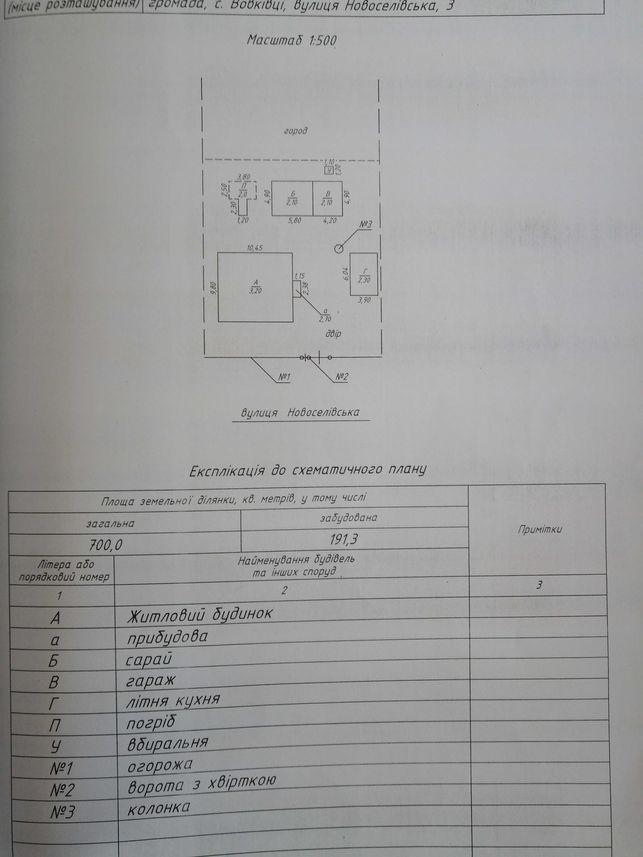 (місце розташування) громада, с. Вовківці, вулиця Новоселівська, 3
Масштаб 1:500
город
1,10
У
1,20
3,80
2,50
П
2,0
2,30
1,20
4,90
Б
2,10
В
2,10
4,90
5,80
4,20
№3
10,45
9,80
А
3,20
1,15
2,38
а
2,70
6,04
Г
2,30
3,90
двір
№1
№2
вулиця Новоселівська
Експлікація до схематичного плану
Площа земельної ділянки, кв. метрів, у тому числі
Примітки
загальна
забудована
700,0
191,3
Літера або порядковий номер
Найменування будівель та інших споруд
1
2
3
А Житловий будинок
а прибудова
Б сарай
В гараж
Г літня кухня
П погріб
У вбиральня
№1 огорожа
№2 ворота з хвірткою
№3 колонка